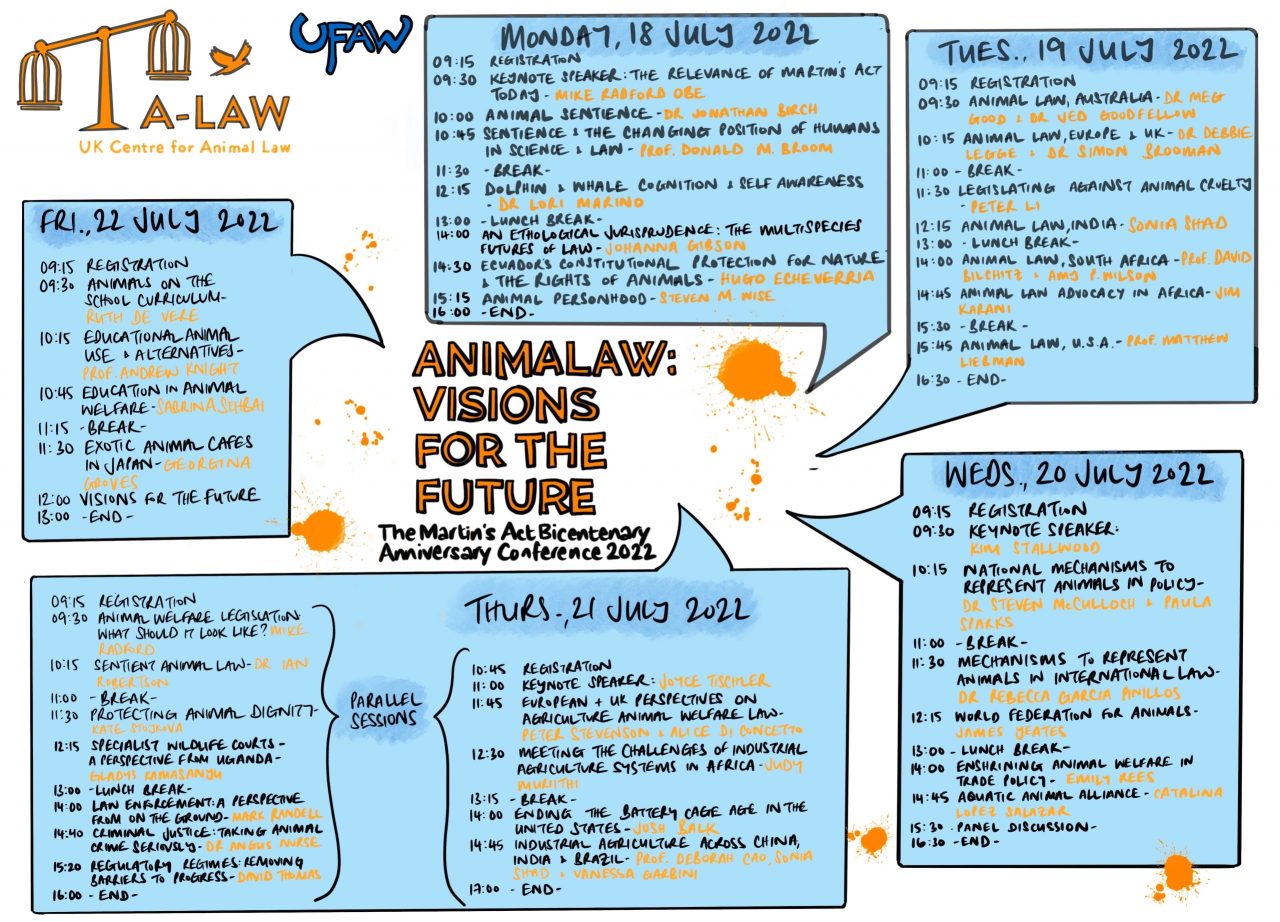 A-LAW
UK Centre for Animal Law
UFAW
MONDAY, 18 JULY 2022
09:15 REGISTRATION
09:30 KEYNOTE SPEAKER: THE RELEVANCE OF MARTIN'S ACT
TODAY - MIKE RADFORD OBE
10:00 ANIMAL SENTIENCE - DR JONATHAN BIRCH
10:45 SENTIENCE & THE CHANGING POSITION OF HUMANS
IN SCIENCE & LAW - PROF. DONALD M. BROOM
11:30 - BREAK -
12:15 DOLPHIN & WHALE COGNITION & SELF AWARENESS
- DR LORI MARINO
13:00 - LUNCH BREAK -
14:00 AN ETHOLOGICAL JURISPRUDENCE: THE MULTISPECIES
FUTURES OF LAW - JOHANNA GIBSON
14:30 ECUADOR'S CONSTITUTIONAL PROTECTION FOR NATURE
& THE RIGHTS OF ANIMALS - HUGO ECHEVERRIA
15:15 ANIMAL PERSONHOOD - STEVEN M. WISE
16:00 - END -
TUES., 19 JULY 2022
09:15 REGISTRATION
09:30 ANIMAL LAW, AUSTRALIA - DR MEG
GOOD & DR JED GOODFELLOW
10:15 ANIMAL LAW, EUROPE & UK - DR DEBBIE
LEGGE & DR SIMON BROOMAN
11:00 - BREAK -
11:30 LEGISLATING AGAINST ANIMAL CRUELTY
- PETER LI
12:15 ANIMAL LAW, INDIA - SONIA SHAD
13:00 - LUNCH BREAK -
14:00 ANIMAL LAW, SOUTH AFRICA - PROF. DAVID
BILCHITZ & AMY P. WILSON
14:45 ANIMAL LAW ADVOCACY IN AFRICA - JIM
KARANI
15:30 - BREAK -
15:45 ANIMAL LAW, U.S.A. - PROF. MATTHEW
LIEBMAN
16:30 - END -
FRI., 22 JULY 2022
09:15 REGISTRATION
09:30 ANIMALS ON THE
SCHOOL CURRICULUM -
RUTH DE VERE
10:15 EDUCATIONAL ANIMAL
USE & ALTERNATIVES -
PROF. ANDREW KNIGHT
10:45 EDUCATION IN ANIMAL
WELFARE - SABRINA SEHBAI
11:15 - BREAK -
11:30 EXOTIC ANIMAL CAFES
IN JAPAN - GEORGINA
GROVES
12:00 VISIONS FOR THE FUTURE
13:00 - END -
ANIMALAW:
VISIONS
FOR THE
FUTURE
The Martin's Act Bicentenary
Anniversary Conference 2022
WEDS., 20 JULY 2022
09:15 REGISTRATION
09:30 KEYNOTE SPEAKER:
KIM STALLWOOD
10:15 NATIONAL MECHANISMS TO
REPRESENT ANIMALS IN POLICY -
DR STEVEN McCULLOCH & PAULA
SPARKS
11:00 - BREAK -
11:30 MECHANISMS TO REPRESENT
ANIMALS IN INTERNATIONAL LAW -
DR REBECCA GARCIA PINILLOS
12:15 WORLD FEDERATION FOR ANIMALS -
JAMES YEATES
13:00 - LUNCH BREAK -
14:00 ENSHRINING ANIMAL WELFARE IN
TRADE POLICY - EMILY REES
14:45 AQUATIC ANIMAL ALLIANCE - CATALINA
LOPEZ SALAZAR
15:30 - PANEL DISCUSSION -
16:30 - END -
THURS., 21 JULY 2022
09:15 REGISTRATION
09:30 ANIMAL WELFARE LEGISLATION:
WHAT SHOULD IT LOOK LIKE? MIKE
RADFORD
10:15 SENTIENT ANIMAL LAW - DR IAN
ROBERTSON
11:00 - BREAK -
11:30 PROTECTING ANIMAL DIGNITY -
KATE STOJKOVA
12:15 SPECIALIST WILDLIFE COURTS -
A PERSPECTIVE FROM UGANDA -
GLADYS KAMASANJU
13:00 - LUNCH BREAK -
14:00 LAW ENFORCEMENT: A PERSPECTIVE
FROM ON THE GROUND - MARK RANDELL
14:40 CRIMINAL JUSTICE: TAKING ANIMAL
CRIME SERIOUSLY - DR ANGUS NURSE
15:20 REGULATORY REGIMES: REMOVING
BARRIERS TO PROGRESS - DAVID THOMAS
16:00 - END -
PARALLEL
SESSIONS
10:45 REGISTRATION
11:00 KEYNOTE SPEAKER: JOYCE TISCHLER
11:45 EUROPEAN + UK PERSPECTIVES ON
AGRICULTURE ANIMAL WELFARE LAW -
PETER STEVENSON & ALICE DI CONCETTO
12:30 MEETING THE CHALLENGES OF INDUSTRIAL
AGRICULTURE SYSTEMS IN AFRICA - JUDY
MURIITHI
13:15 - BREAK -
14:00 ENDING THE BATTERY CAGE AGE IN THE
UNITED STATES - JOSH BALK
14:45 INDUSTRIAL AGRICULTURE ACROSS CHINA,
INDIA & BRAZIL - PROF. DEBORAH CAO, SONIA
SHAD & VANESSA GARBINI
17:00 - END -